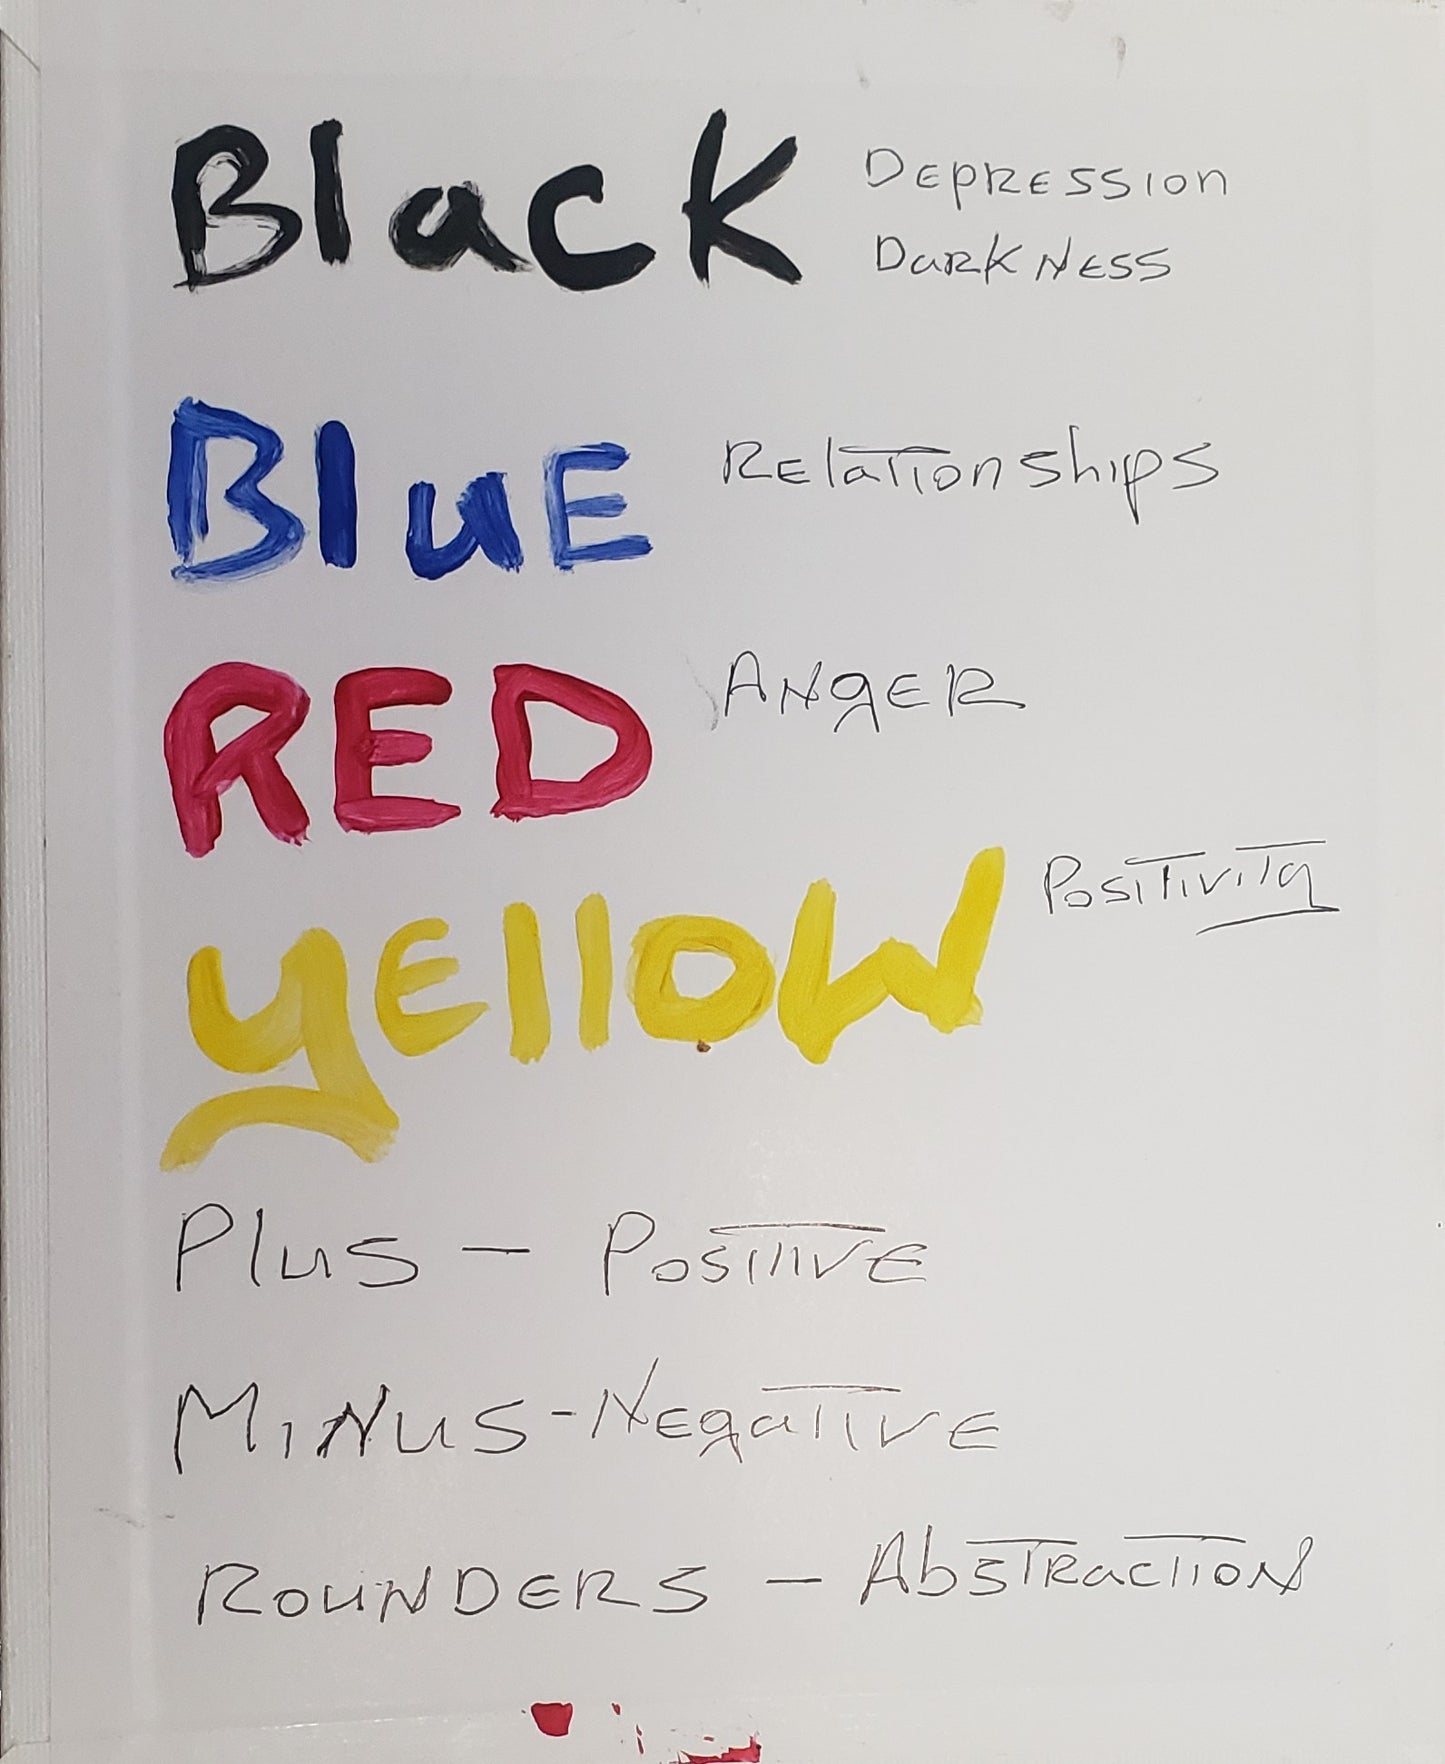 Black Depression
Darkness
BluE Relationships
RED Anger
yEllow Positivity
Plus - Positive
Minus - Negative
Rounders - Abstraction